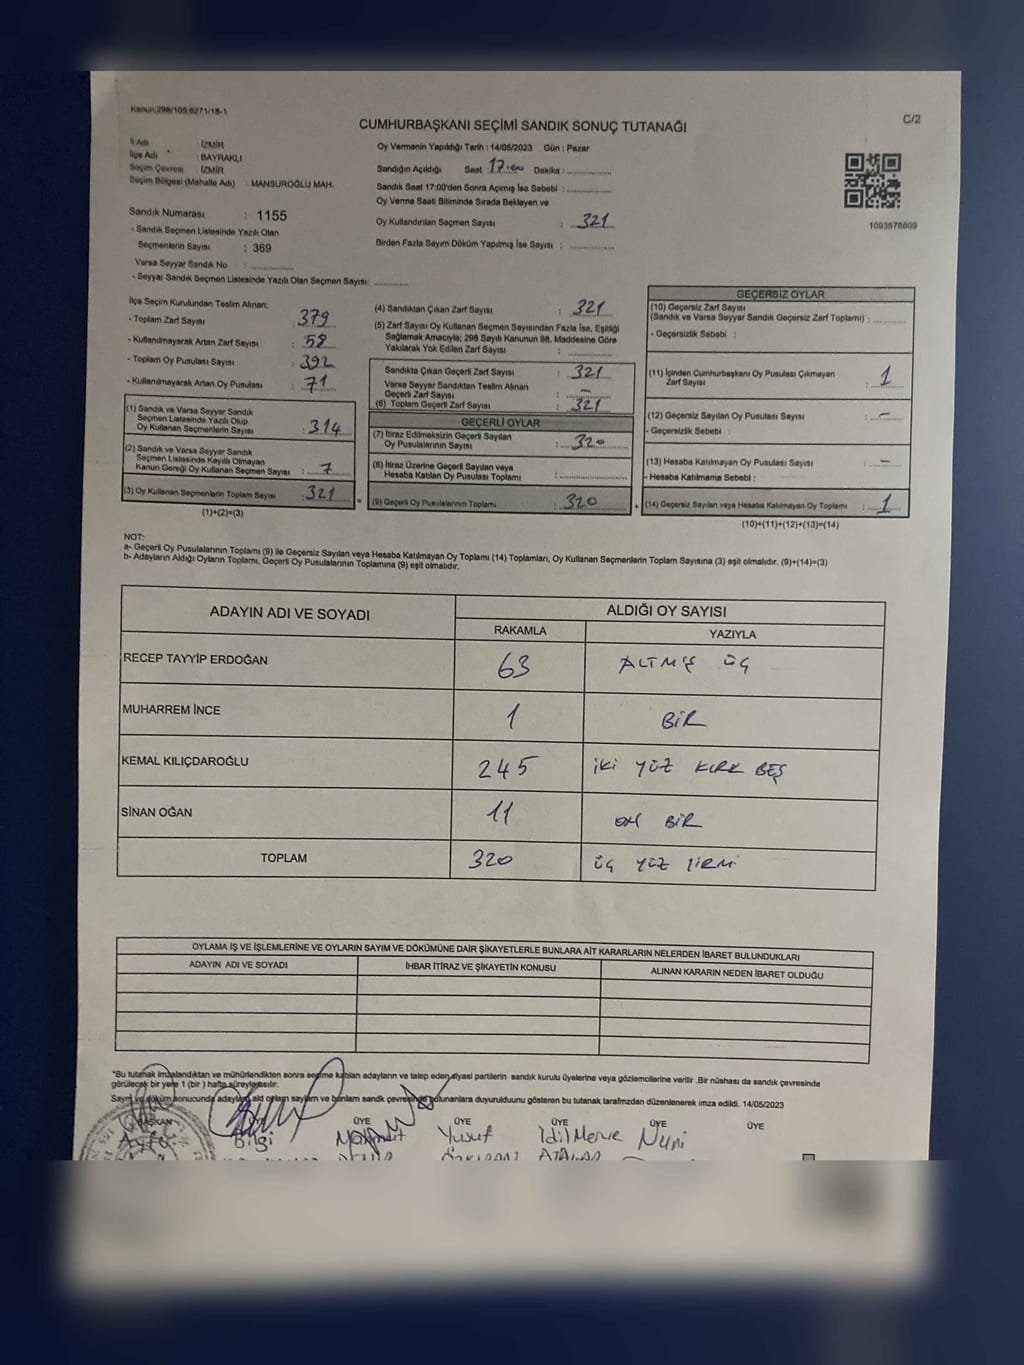 Kanun:298/105;6271/18-1
C/2
CUMHURBAŞKANI SEÇİMİ SANDIK SONUÇ TUTANAĞI
İl Adı : İZMİR
İlçe Adı : BAYRAKLI
Seçim Çevresi : İZMİR
Seçim Bölgesi (Mahalle Adı) : MANSUROĞLU MAH.
Sandık Numarası : 1155
- Sandık Seçmen Listesinde Yazılı Olan
Seçmenlerin Sayısı : 369
Varsa Seyyar Sandık No : ..............
- Seyyar Sandık Seçmen Listesinde Yazılı Olan Seçmen Sayısı: ............
Oy Vermenin Yapıldığı Tarih : 14/05/2023 Gün : Pazar
Sandığın Açıldığı Saat : 17.00 Dakika : ..............
Sandık Saat 17:00'den Sonra Açımış İse Sebebi : ..............
Oy Verme Saati Bitiminde Sırada Bekleyen ve
Oy Kullandırılan Seçmen Sayısı : 321
Birden Fazla Sayım Döküm Yapılmış İse Sayısı : ..............
1093576609
İlçe Seçim Kurulundan Teslim Alınan;
- Toplam Zarf Sayısı : 379
- Kullanılmayarak Artan Zarf Sayısı : 58
- Toplam Oy Pusulası Sayısı : 392
- Kullanılmayarak Artan Oy Pusulası : 71
(1) Sandık ve Varsa Seyyar Sandık
Seçmen Listesinde Yazılı Olup
Oy Kullanan Seçmenlerin Sayısı : 314
(2) Sandık ve Varsa Seyyar Sandık
Seçmen Listesinde Kayıtlı Olmayan
Kanun Gereği Oy Kullanan Seçmen Sayısı : 7
(3) Oy Kullanan Seçmenlerin Toplam Sayısı : 321
(1)+(2)=(3)
=
(4) Sandıktan Çıkan Zarf Sayısı : 321
(5) Zarf Sayısı Oy Kullanan Seçmen Sayısından Fazla İse, Eşitliği
Sağlamak Amacıyla; 298 Sayılı Kanunun 98. Maddesine Göre
Yakılarak Yok Edilen Zarf Sayısı : ..............
Sandıkta Çıkan Geçerli Zarf Sayısı : 321
Varsa Seyyar Sandıktan Teslim Alınan
Geçerli Zarf Sayısı : -
(6) Toplam Geçerli Zarf Sayısı : 321
GEÇERLİ OYLAR
(7) İtiraz Edilmeksizin Geçerli Sayılan
Oy Pusulalarının Sayısı : 320
(8) İtiraz Üzerine Geçerli Sayılan veya
Hesaba Katılan Oy Pusulası Toplamı : ..............
(9) Geçerli Oy Pusulalarının Toplamı : 320
+
GEÇERSİZ OYLAR
(10) Geçersiz Zarf Sayısı
(Sandık ve Varsa Seyyar Sandık Geçersiz Zarf Toplamı) : ............
- Geçersizlik Sebebi :
(11) İçinden Cumhurbaşkanı Oy Pusulası Çıkmayan
Zarf Sayısı : 1
(12) Geçersiz Sayılan Oy Pusulası Sayısı : -
- Geçersizlik Sebebi :
(13) Hesaba Katılmayan Oy Pusulası Sayısı : -
- Hesaba Katılmama Sebebi :
(14) Geçersiz Sayılan veya Hesaba Katılmayan Oy Toplamı : 1
(10)+(11)+(12)+(13)=(14)
NOT:
a- Geçerli Oy Pusulalarının Toplamı (9) ile Geçersiz Sayılan veya Hesaba Katılmayan Oy Toplamı (14) Toplamları, Oy Kullanan Seçmenlerin Toplam Sayısına (3) eşit olmalıdır. (9)+(14)=(3)
b- Adayların Aldığı Oyların Toplamı, Geçerli Oy Pusulalarının Toplamına (9) eşit olmalıdır.
ADAYIN ADI VE SOYADI ALDIĞI OY SAYISI
RAKAMLA YAZIYLA
RECEP TAYYİP ERDOĞAN 63 ALTMIŞ ÜÇ
MUHARREM İNCE 1 BİR
KEMAL KILIÇDAROĞLU 245 İKİ YÜZ KIRK BEŞ
SİNAN OĞAN 11 ON BİR
TOPLAM 320 ÜÇ YÜZ YİRMİ
OYLAMA İŞ VE İŞLEMLERİNE VE OYLARIN SAYIM VE DÖKÜMÜNE DAİR ŞİKAYETLERLE BUNLARA AİT KARARLARIN NELERDEN İBARET BULUNDUKLARI
ADAYIN ADI VE SOYADI İHBAR İTİRAZ VE ŞİKAYETİN KONUSU ALINAN KARARIN NEDEN İBARET OLDUĞU
*Bu tutanak imzalandıktan ve mühürlendikten sonra seçime katılan adayların ve talep eden siyasi partilerin sandık kurulu üyelerine veya gözlemcilerine verilir .Bir nüshası da sandık çevresinde
görülecek bir yere 1 (bir ) hafta süreyle asılır.
Sayım ve döküm sonucunda adayların aldığı oyların sayım ve bunların sandık çevresinde bulunanlara duyurulduunu gösteren bu tutanak tarafmzdan düzenlenerek imza edildi. 14/05/2023
BAŞKAN ÜYE ÜYE ÜYE ÜYE ÜYE
Bilgi Yusuf İdil Merve Nuri